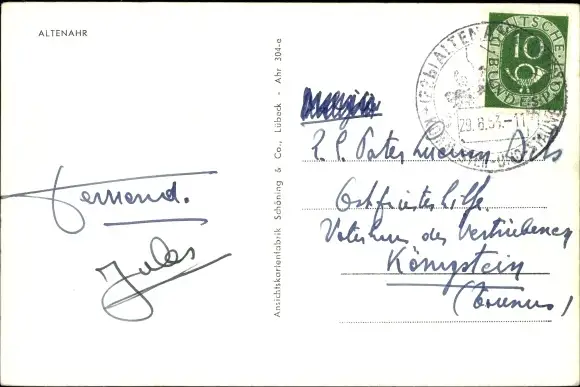 ALTENAHR
Fernand.
Jules
Ansichtskartenfabrik Schöning & Co., Lübeck - Ahr 304-a
DEUTSCHE BUNDESPOST
10
ALTENAHR
29.8.53.-11
R.P. Pater Lucien
Ostpriesterhilfe.
Vaterhaus des Vertriebenen
Königstein
(Taunus)